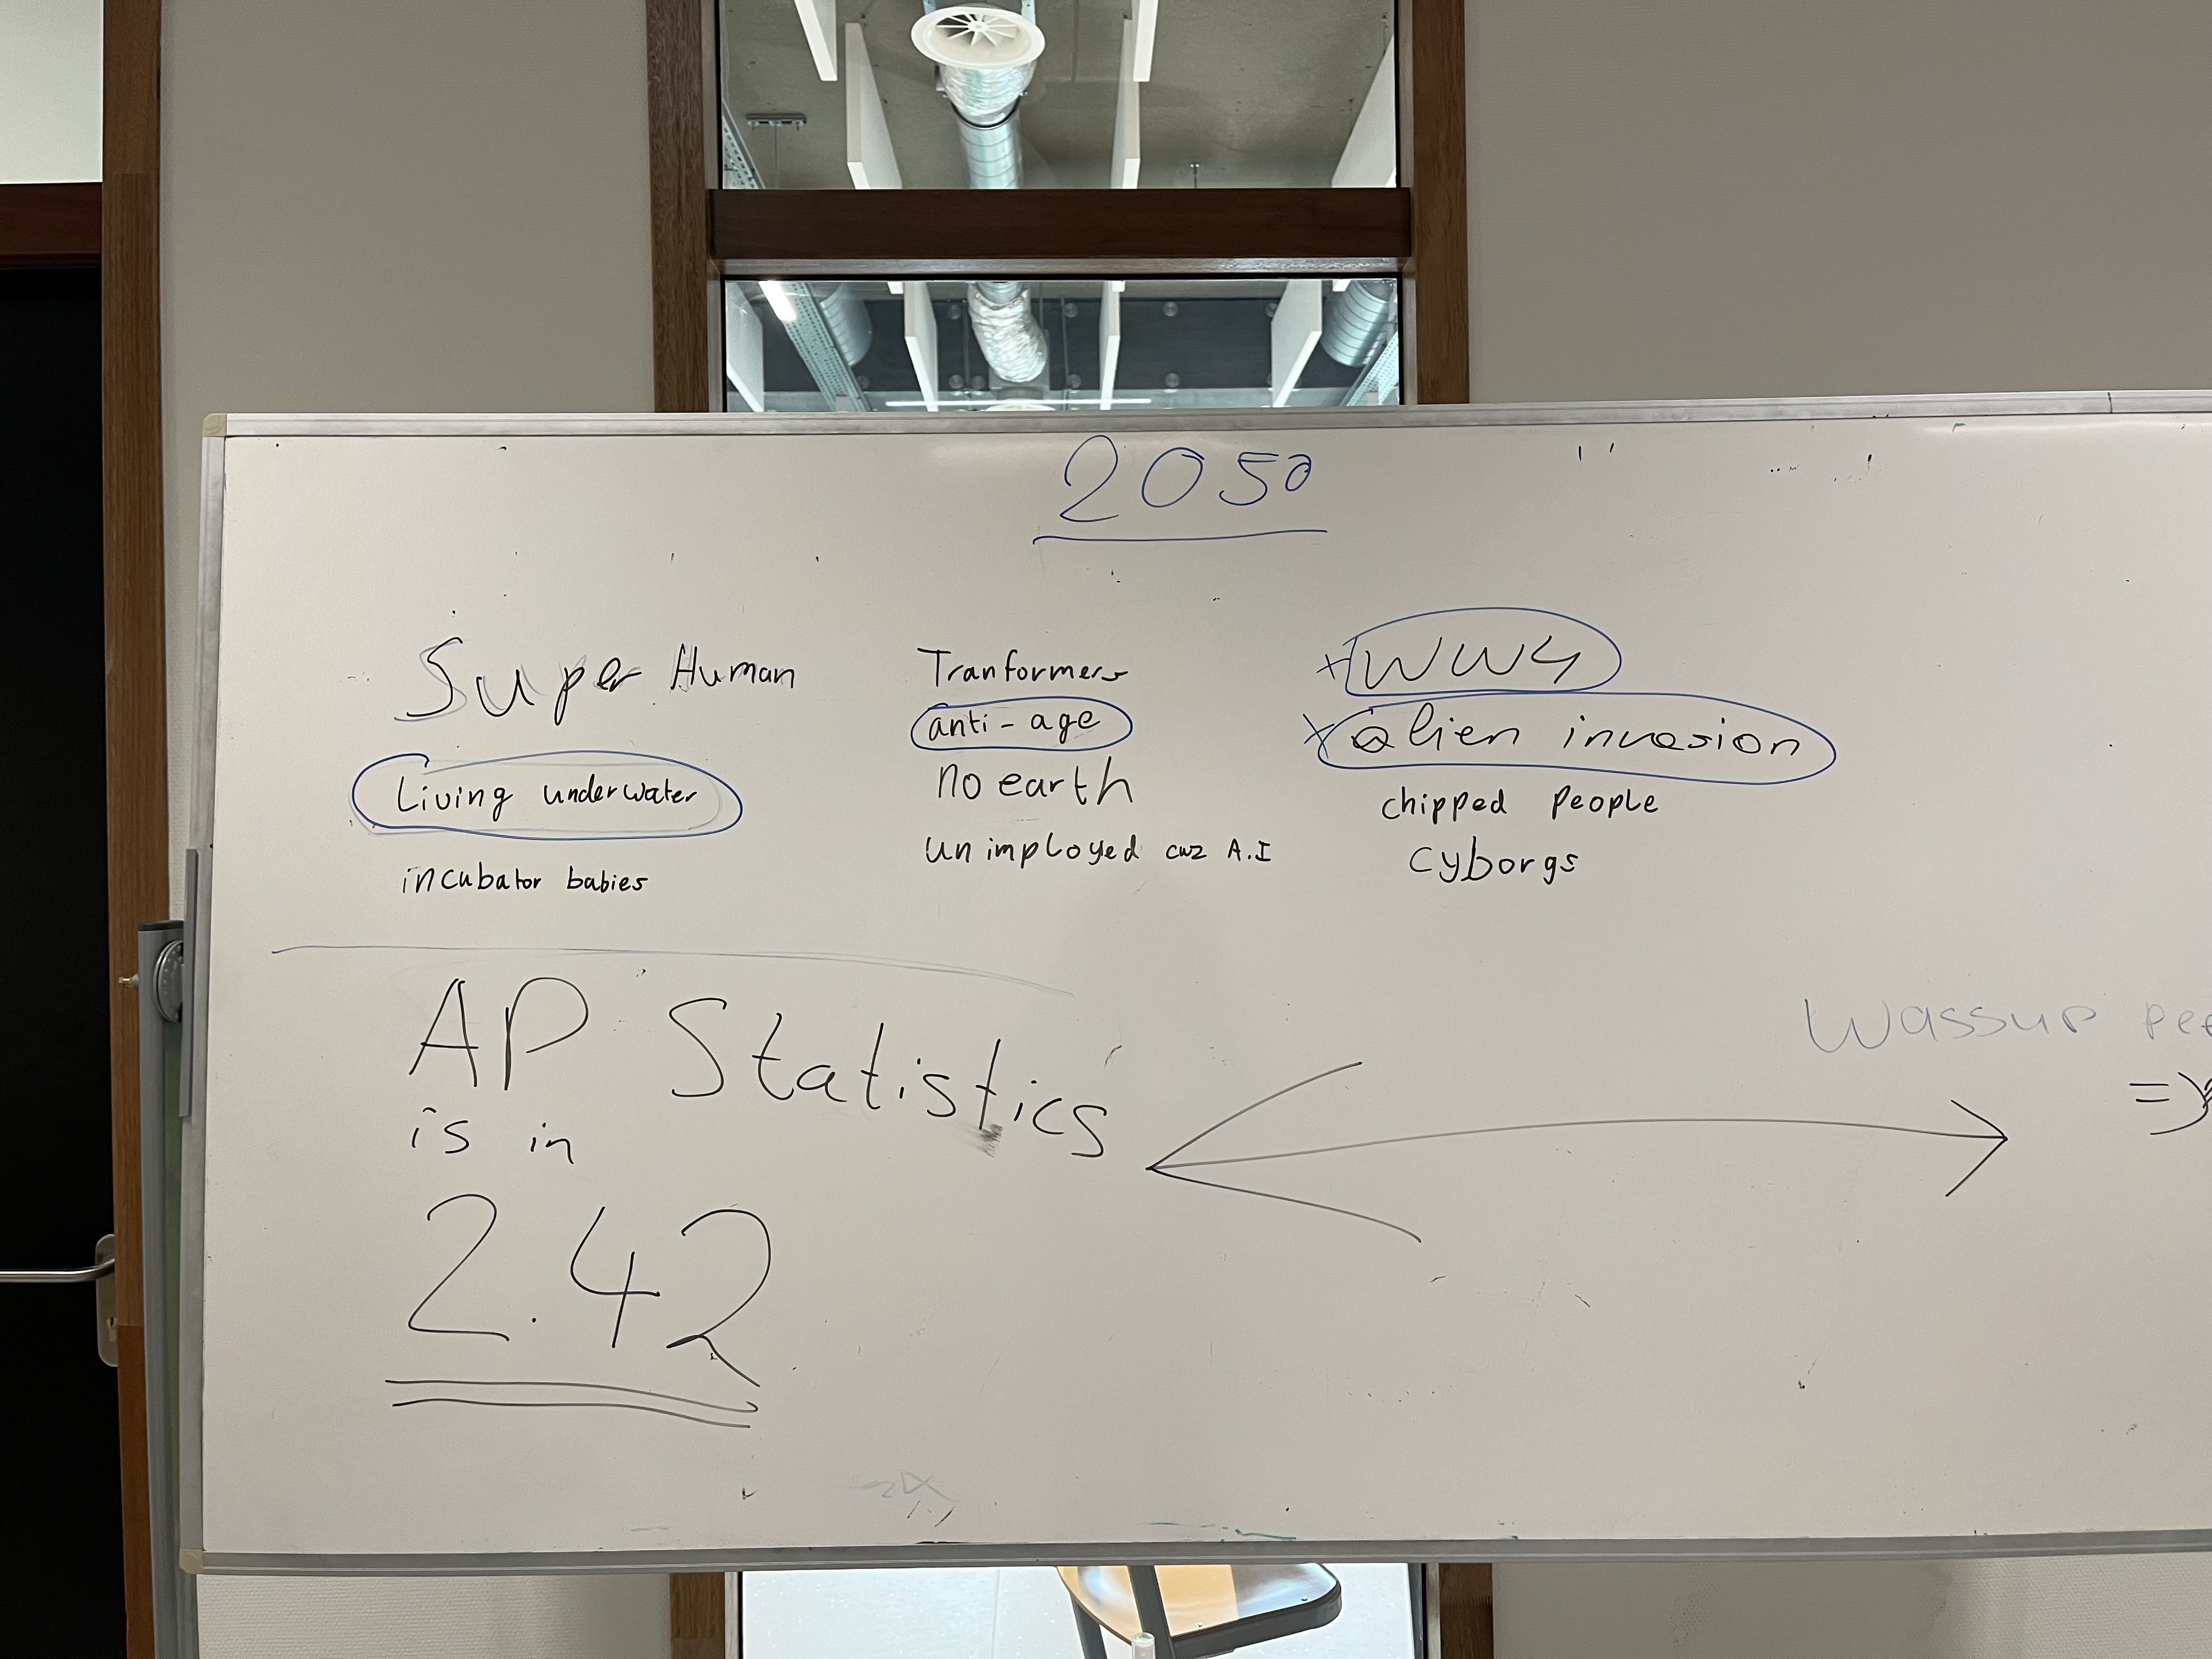 2050
Super Human
Living underwater
incubator babies
Tranformers
anti-age
no earth
unimployed cuz A.I
WW4
alien invasion
chipped people
cyborgs
AP Statistics
is in
2.42
Wassup
=)